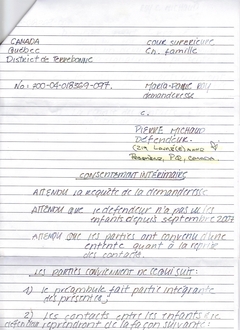 CANADA
Québec
District de Terrebonne
cour supérieure,
Ch. famille
No: 700-04-018349-097.
demanderesse
c.
PIERRE MICHAUD
Défendeur.
CONSENTEMENT INTÉRIMAIRE
ATTENDU la requête de la demanderesse
ATTENDU que le défendeur n'a pas vu les
enfants depuis septembre 2007
ATTENDU que les parties ont convenu d'une
entente quant à la reprise
des contacts.
Les parties conviennent de ce qui suit:
1) le préambule fait partie intégrante
des présentes;
2) les contacts entre les enfants et le
défendeur reprendront de la façon suivante: